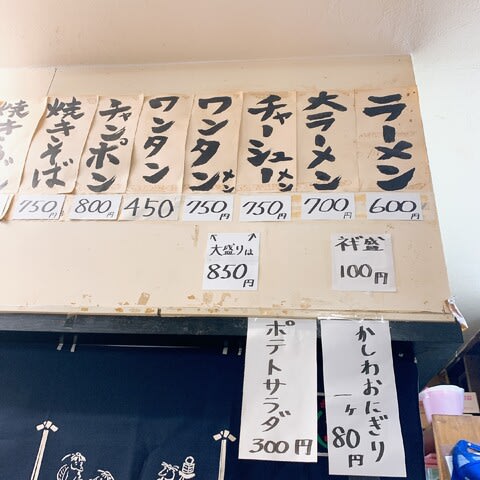 ラーメン
600円
大ラーメン
700円
チャーシューメン
750円
ワンタンメン
750円
ワンタン
450
チャンポン
800円
焼きそば
750円
大盛りは
850円
100円
かしわおにぎり
一ヶ80円
ポテトサラダ
300円